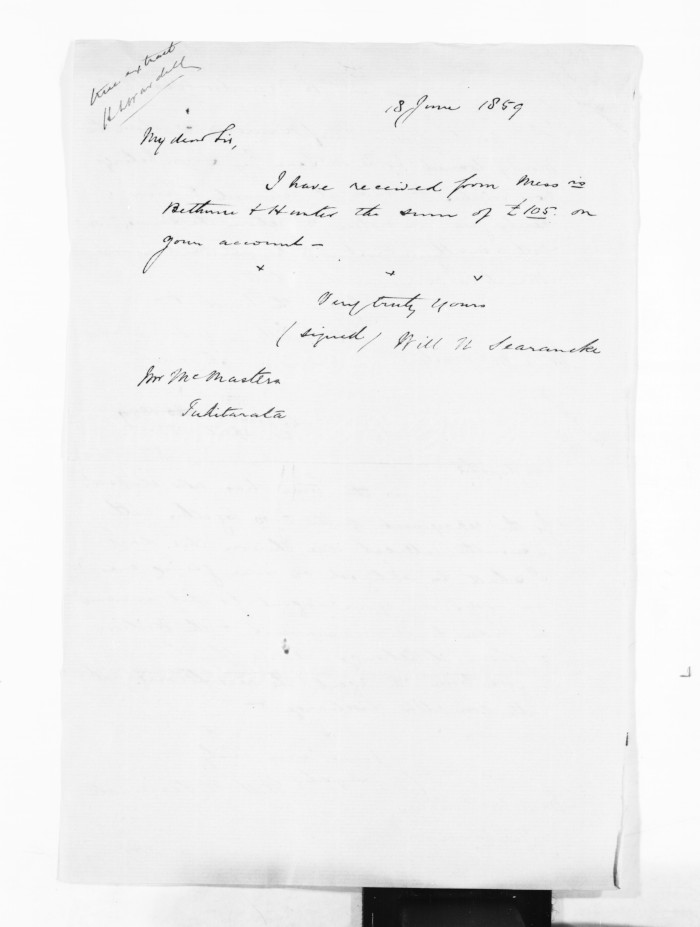 true extract
H Wardell
18 June 1859
My dear Sir,
I have received from Messrs
Bethune & Hunter the sum of £105. on
your account –
x x x
Very truly Yours
(signed) Will N Searancke
Mr McMasters
Tukitarata